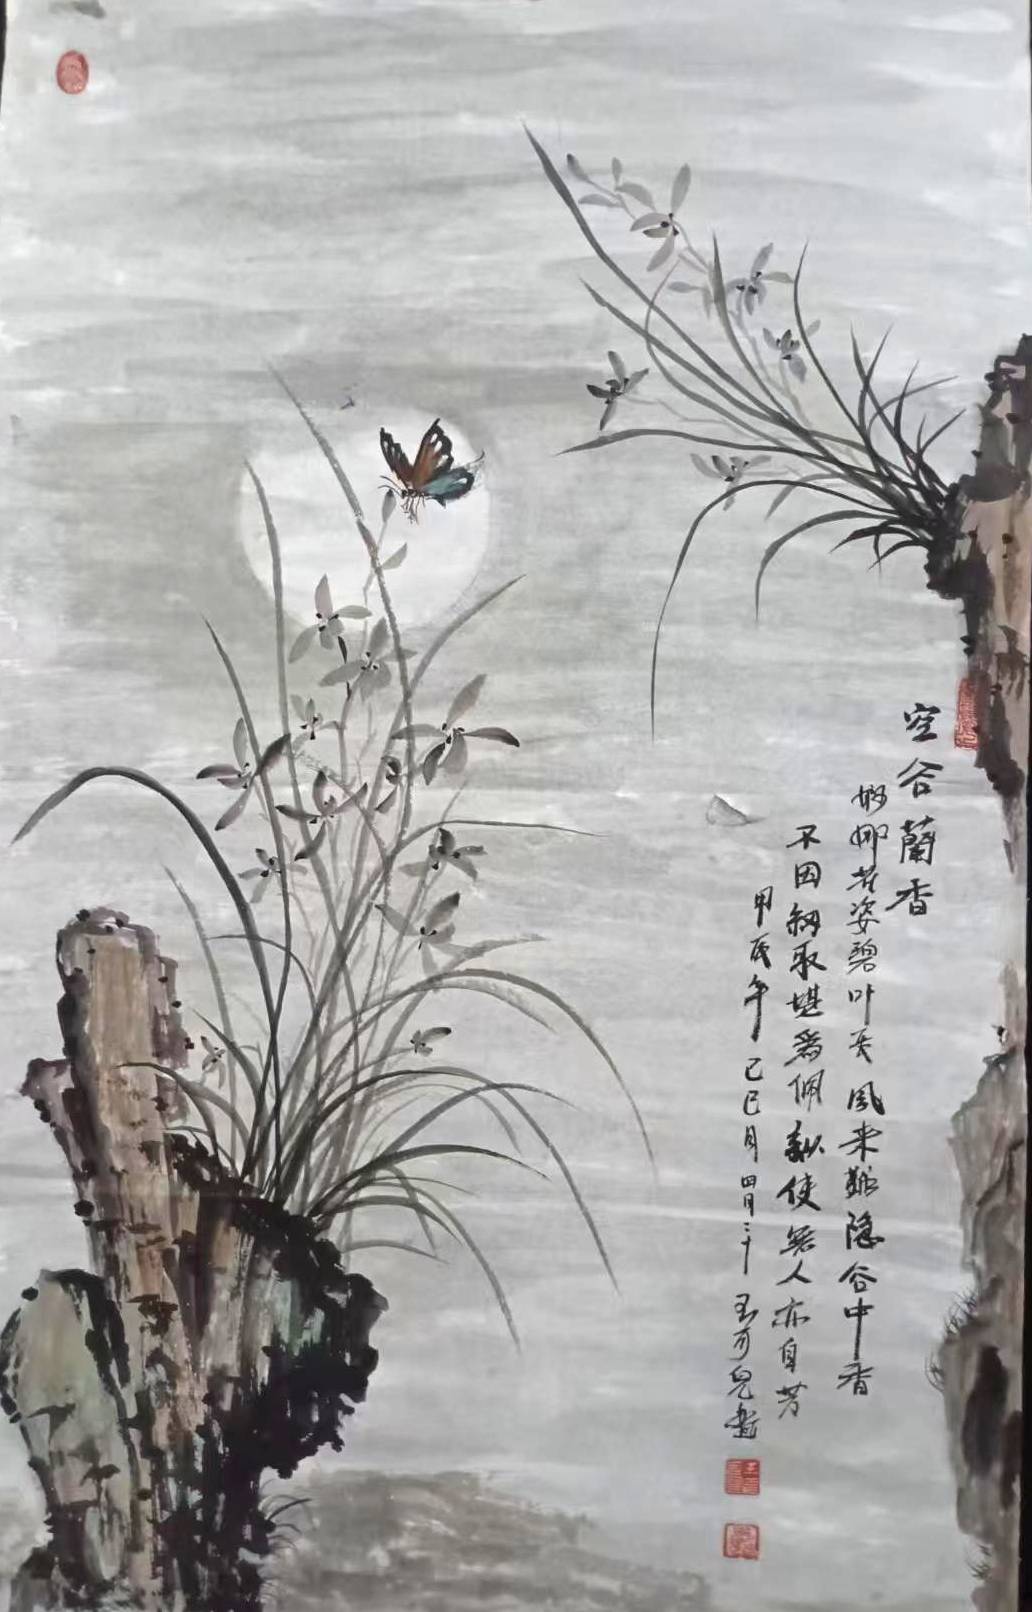 空谷蘭香
婀娜花姿碧叶长 風来難隐谷中香
不因紉取堪為佩 縱使無人亦自芳
甲辰年 己巳月 四月二十 王可兒畫